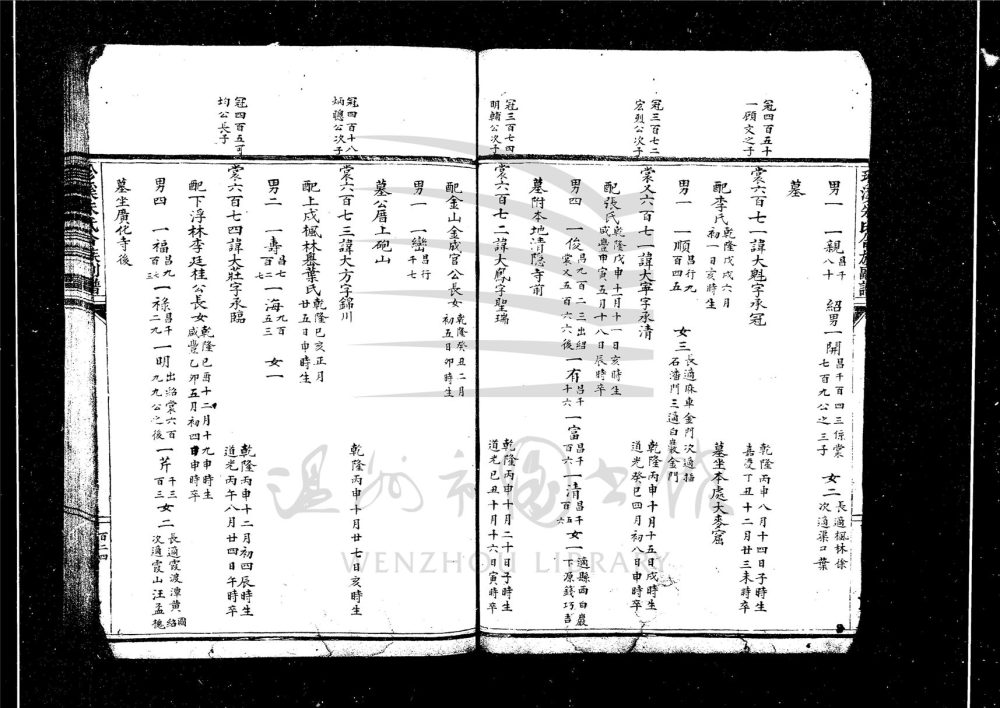 男一 一親 昌千八十 紹男一開 昌千百四三係棠七百九公之三子 女二 長適楓林徐 次適渠口葉
墓
冠四百五十一顧文之子
棠六百七一諱大魁字承冠 乾隆丙申八月十四日子時生 嘉慶丁丑十二月廿三未時卒
配李氏 乾隆戊戌六月初一日亥時生 墓坐本處大麥窟
男一 一順 昌行九百四五 女三 長適麻車金門次適 石潘門三適白巖金門
冠三百七二宏烈公次子
棠又六百七一諱大寧字承清 乾隆丙申十月十五日戌時生 道光癸巳四月初八日申時卒
配張氏 乾隆戊申十月十一日亥時生 咸豐甲寅五月十八日辰時卒
男四 一俊 昌九百二二出紹棠又五百六六後 一有 昌千十六 一富 昌千百六 一清 昌千百五 女一 適縣西白巖下原錢巧吉
墓附本地清隱寺前
冠三百七四明輔公次子
棠六百七二諱大鳳字聖瑞 乾隆丙申十月二十日子時生 道光己丑十月十六日寅時卒
配金山金咸官公長女 乾隆癸丑二月初五日卯時生
男一 一巒 昌行千七
墓公厝上炮山
冠四百十八炳聽公次子
棠六百七三諱大方字錦川 乾隆丙申十月廿七日亥時生
配上戍楓林墺葉氏 乾隆己亥正月廿五日申時生
男二 一壽 昌七百二七 一海 九百五三 女一
冠四百五可均公長子
棠六百七四諱大莊字承臨 乾隆丙申十二月初四辰時生 道光丙午八月廿四日午時卒
配下浮林李廷桂公長女 乾隆己酉十二月十九申時生 咸豐乙卯五月初四日申時卒
男四 一福 昌九百三七 一祿 昌千二九 一明 出紹棠六百九九公之後 一芹 千三百三 女二 長適霞渡潭黃紹國 次適霞山汪孟槐
墓坐廣化寺後
百二四
WENZHOU LIBRARY